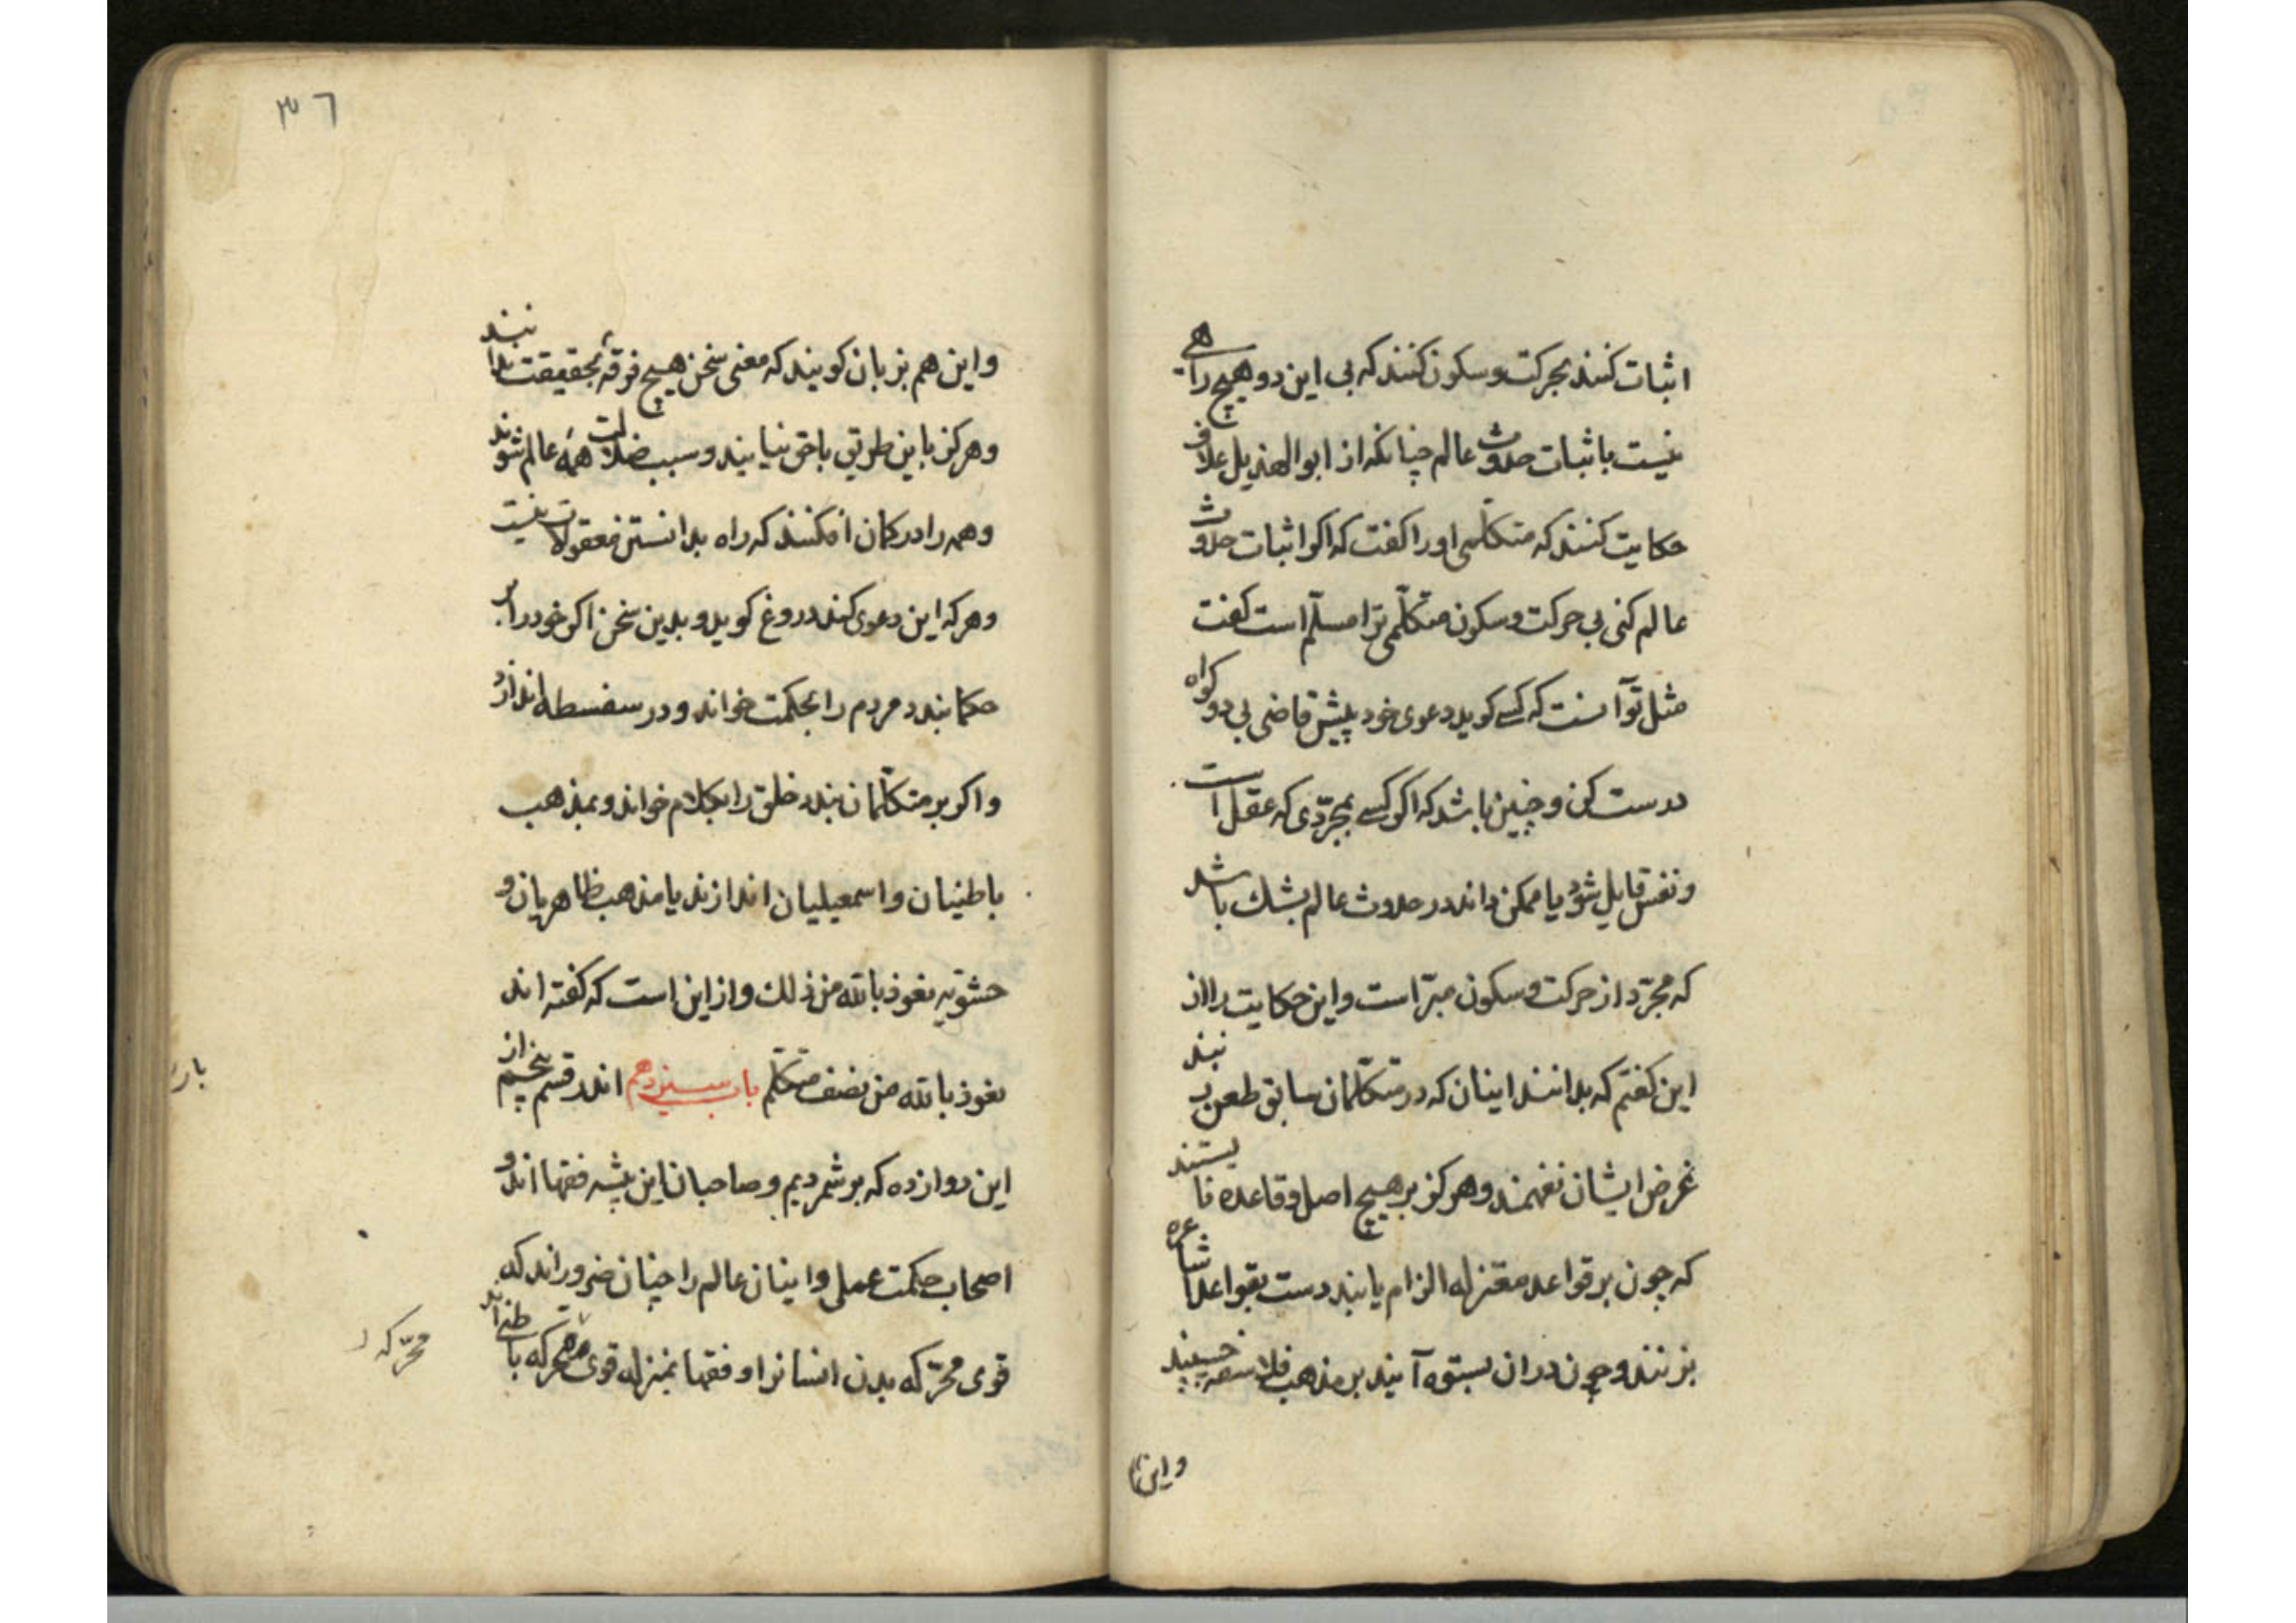 اثبات کنند بحرکت و سکون کنند که بی این دو هیچ راهی
نیست باثبات حدوث عالم چنانکه از ابوالهذیل علاف
حکایت کنند که متکلّمی اورا کفت که اکر اثبات حدوث
عالم کنی بی حرکت و سکون متکلّمی ترا مسلّم است کفت
مثل تو آنست که کسی کوید دعوی خود پیش قاضی بی دو کواه
درست کن و چنین باشد که اکر کسی بمجرّدی که عقل است
و نفس قایل شود یا ممکن داند در حدوث عالم بشک باشد
که مجرّد از حرکت و سکون مبرّاست و این حکایت را از
این کفتم که بدانند اینان که در متکلّمان سابق طعن بر نیند
غرض ایشان نفهمند و هرکز بر هیچ اصل و قاعده نایستند
که چون بر قواعد معتزله الزام یابند دست بقواعد اشاعره
بزنند و چون دران بستوه آیند بر مذهب فلاسفه چسپیند
و این
٣٦
و این هم بزبان کویند که معنی سخن هیچ فرقهٔ بحقیقت ندانیند
و هرکز باین طریق باحق نیایند و سبب ضلالت همهٔ عالم شوند
و همه را در کمان افکنند که راه بدانستن معقولات نیست
و هرکه این دعوی کند دروغ کوید و بدین سخن اکر خود را بر
حکما بندد مردم را بحکمت خواند و در سفسطه اندازد
و اکر بر متکلّمان بندد خلق را بکلام خواند و بمذهب
باطنیان و اسمعیلیان اندازند یا مذهب ظاهریان و
حشویّه نعوذ بالله من ذلك و از این است که کفته اند
نعوذ بالله من نصف متکلّم باب سیزدهم اندر قسم پنجم از
این دوازده که برشمردیم و صاحبان این پیشه فقها اند و
اصحاب حکمت عملی و اینان عالم را چنان ضرور اند که
قوی محرّکه بدن انسانرا و فقها بمنزله قوی محرّکه باطنی اند
محرّکه
بار